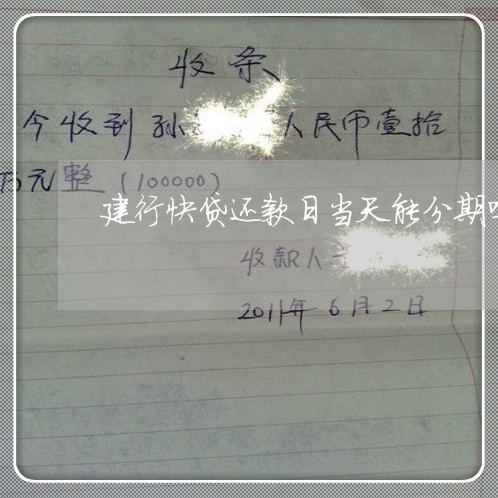 收条
今收到孙 人民币壹拾
万元整(100000)
建行快贷还款日当天能分期
收款人
2011年6月2日